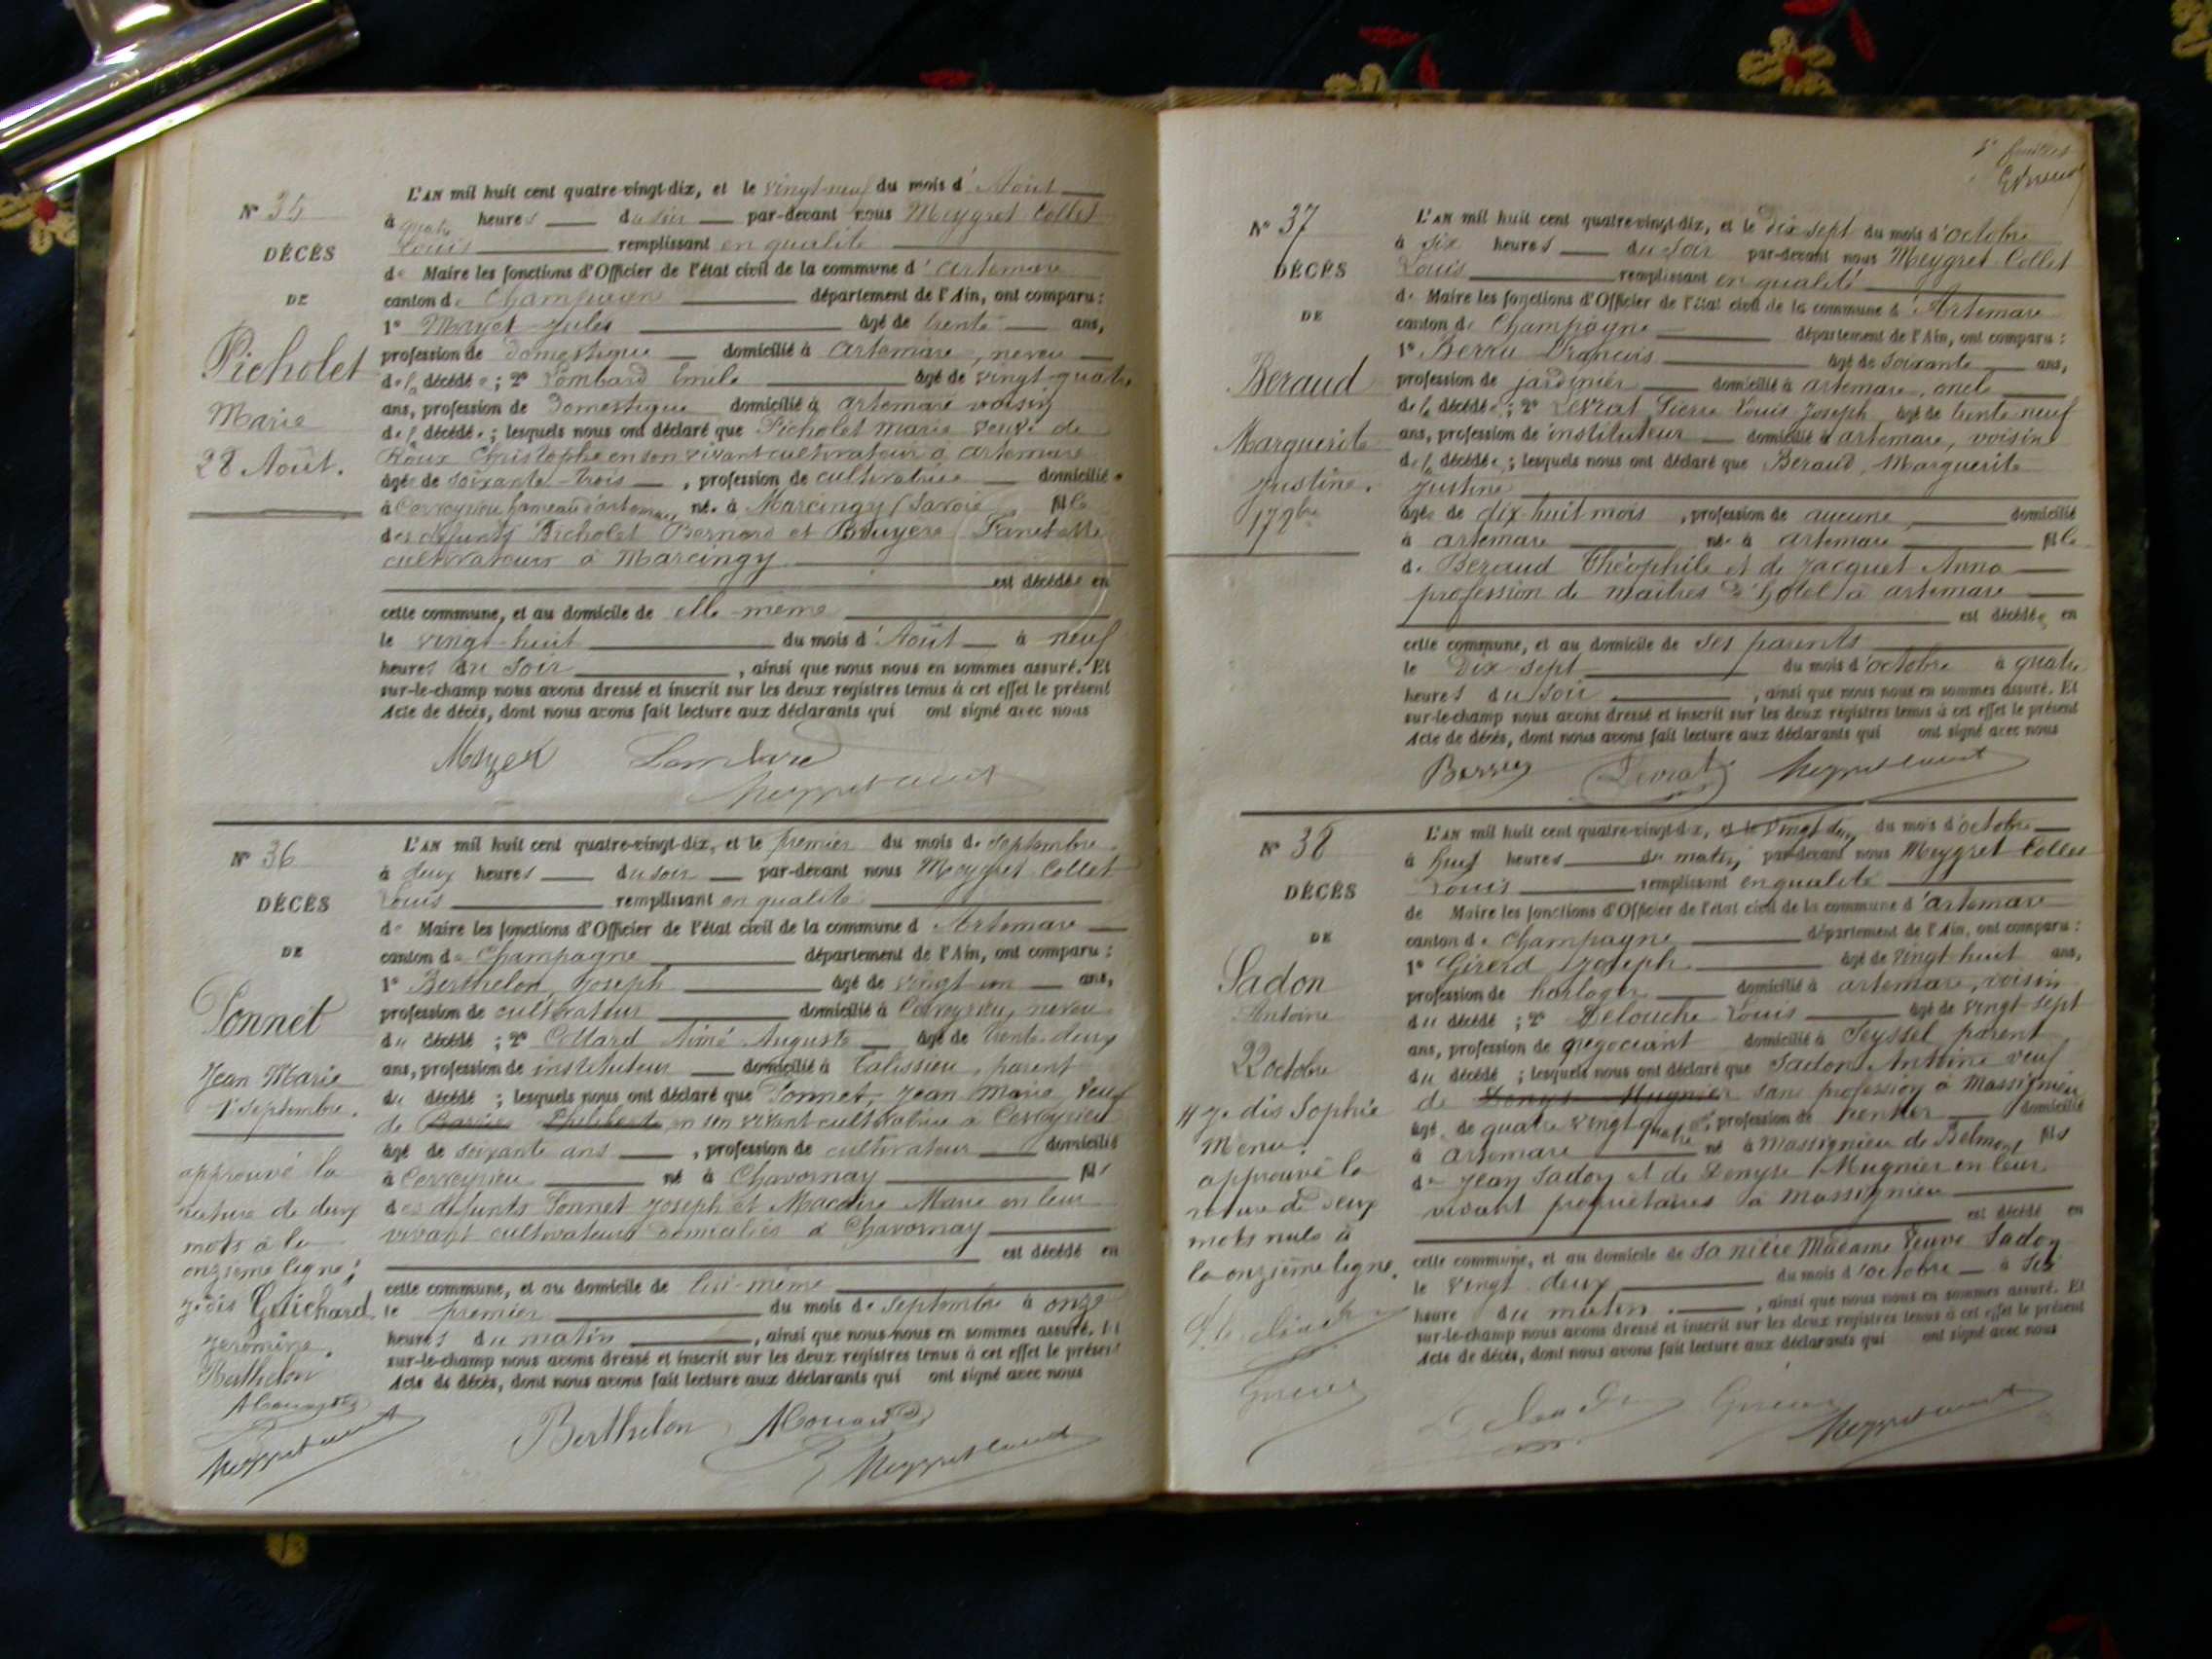 N° 35
DÉCÈS
DE
Picholet
Marie
28 Août.
L'AN mil huit cent quatre-vingt-dix, et le vingt-neuf du mois d'Août
à quatre heures du soir par-devant nous Meygret Collet
Louis remplissant en qualité
de Maire les fonctions d'Officier de l'état civil de la commune d'artemare
canton de Champagne département de l'Ain, ont comparu :
1° Mayet Jules âgé de trente ans,
profession de domestique domicilié à artemare, neveu
de la décédée ; 2° Lombard Emile âgé de vingt quatre
ans, profession de Domestique domicilié à artemare voisin
de la décédée ; lesquels nous ont déclaré que Picholet Marie veuve de
Roux Christophe en son vivant cultivateur à artemare
âgée de soixante-trois , profession de cultivatrice domiciliée
à Cerveyrieu hameau d'artemare, née à Marcingy (Savoie fille
des défunts Picholet Bernard et Bruyere
cultivateurs à Marcingy
est décédée en
cette commune, et au domicile de elle-même
le vingt-huit du mois d'Août à neuf
heures du soir , ainsi que nous nous en sommes assuré. Et
sur-le-champ nous avons dressé et inscrit sur les deux registres tenus à cet effet le présent
Acte de décès, dont nous avons fait lecture aux déclarants qui ont signé avec nous
Mayet Lombard
N° 36
DÉCÈS
DE
Ponnet
Jean Marie
1er Septembre.
approuvé la
rature de deux
mots à la
onzième ligne ;
je dis Guichard
Jeromine.
Berthelon
L'AN mil huit cent quatre-vingt-dix, et le premier du mois de septembre
à deux heures du soir par-devant nous Meygret Collet
Louis remplissant en qualité
de Maire les fonctions d'Officier de l'état civil de la commune d'Artemare
canton de Champagne département de l'Ain, ont comparu :
1° Berthelon Joseph âgé de vingt un ans,
profession de cultivateur domicilié à Cerveyrieu, neveu
du décédé ; 2° Collard Aimé Auguste âgé de trente-deux
ans, profession de instituteur domicilié à Talissieu, parent
du décédé ; lesquels nous ont déclaré que Ponnet, Jean Marie, Veuf
de Philiberte en son vivant cultivatrice à Cerveyrieu
âgé de soixante ans , profession de cultivateur domicilié
à Cerveyrieu né à Chavornay fils
des défunts Ponnet Joseph et Macaire Marie en leur
vivant cultivateurs domiciliés à Chavornay
est décédé en
cette commune, et au domicile de lui-même
le premier du mois de septembre à onze
heures du matin , ainsi que nous nous en sommes assuré. Et
sur-le-champ nous avons dressé et inscrit sur les deux registres tenus à cet effet le présent
Acte de décès, dont nous avons fait lecture aux déclarants qui ont signé avec nous
Berthelon
N° 37
DÉCÈS
DE
Beraud
Marguerite
Justine.
17 8bre
L'AN mil huit cent quatre-vingt-dix, et le dix sept du mois d'octobre
à six heures du soir par-devant nous Meygret Collet
Louis remplissant en qualité
de Maire les fonctions d'Officier de l'état civil de la commune d'Artemare
canton de Champagne département de l'Ain, ont comparu :
1° Berru François âgé de soixante ans,
profession de jardinier domicilié à artemare, oncle
de la décédée ; 2° Levrat Pierre Louis Joseph âgé de trente neuf
ans, profession de instituteur domicilié à artemare, voisin
de la décédée ; lesquels nous ont déclaré que Beraud, Marguerite
Justine
âgée de dix-huit mois , profession de aucune domicilié
à artemare née à artemare fille
de Beraud Théophile et de Jacquet Anna
profession de maîtres d'hôtel à artemare
est décédée en
cette commune, et au domicile de ses parents
le Dix sept du mois d'octobre à quatre
heures du soir , ainsi que nous nous en sommes assuré. Et
sur-le-champ nous avons dressé et inscrit sur les deux registres tenus à cet effet le présent
Acte de décès, dont nous avons fait lecture aux déclarants qui ont signé avec nous
Levrat
N° 38
DÉCÈS
DE
Sadon
Antoine
22 octobre
je dis Sophie
Menu.
approuvé la
rature de deux
mots nuls à
la onzième ligne.
L'AN mil huit cent quatre-vingt-dix, et le vingt deux du mois d'octobre
à huit heures du matin, par-devant nous Meygret Collet
Louis remplissant en qualité
de Maire les fonctions d'Officier de l'état civil de la commune d'artemare
canton de Champagne département de l'Ain, ont comparu :
1° Girerd Joseph âgé de vingt huit ans,
profession de horloger domicilié à artemare, voisin
du décédé ; 2° Delouche Louis âgé de vingt-sept
ans, profession de negociant domicilié à Seyssel parent
du décédé ; lesquels nous ont déclaré que Sadon Antoine veuf
de Denyse Mugnier sans profession à Massignieu
âgé de quatre vingt quatre ans, profession de rentier domicilié
à artemare né à Massignieu de Belmont fils
de Jean Sadon et de Denyse Mugnier en leur
vivant propriétaires à Massignieu
est décédé en
cette commune, et au domicile de sa nièce Madame Veuve Sadon
le vingt-deux du mois d'octobre à six
heure du matin , ainsi que nous nous en sommes assuré. Et
sur-le-champ nous avons dressé et inscrit sur les deux registres tenus à cet effet le présent
Acte de décès, dont nous avons fait lecture aux déclarants qui ont signé avec nous